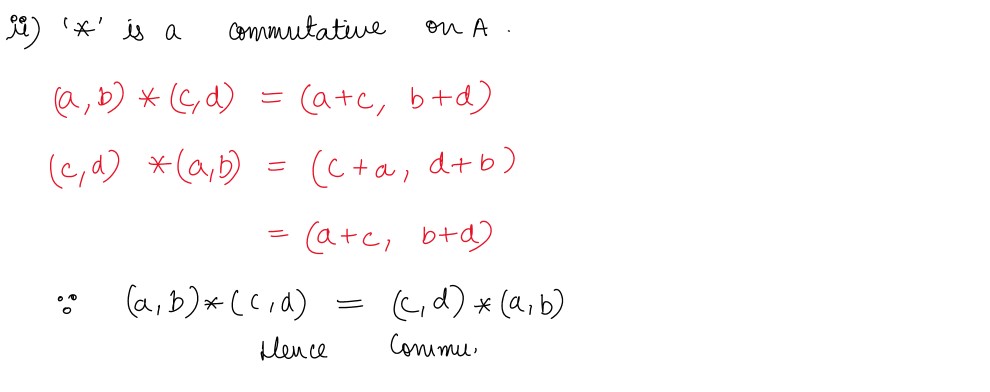 ii) '*' is a commutative on A .
(a, b) * (c, d) = (a+c, b+d)
(c, d) * (a, b) = (c+a, d+b)
= (a+c, b+d)
∵ (a, b) * (c, d) = (c, d) * (a, b)
Hence Commu.